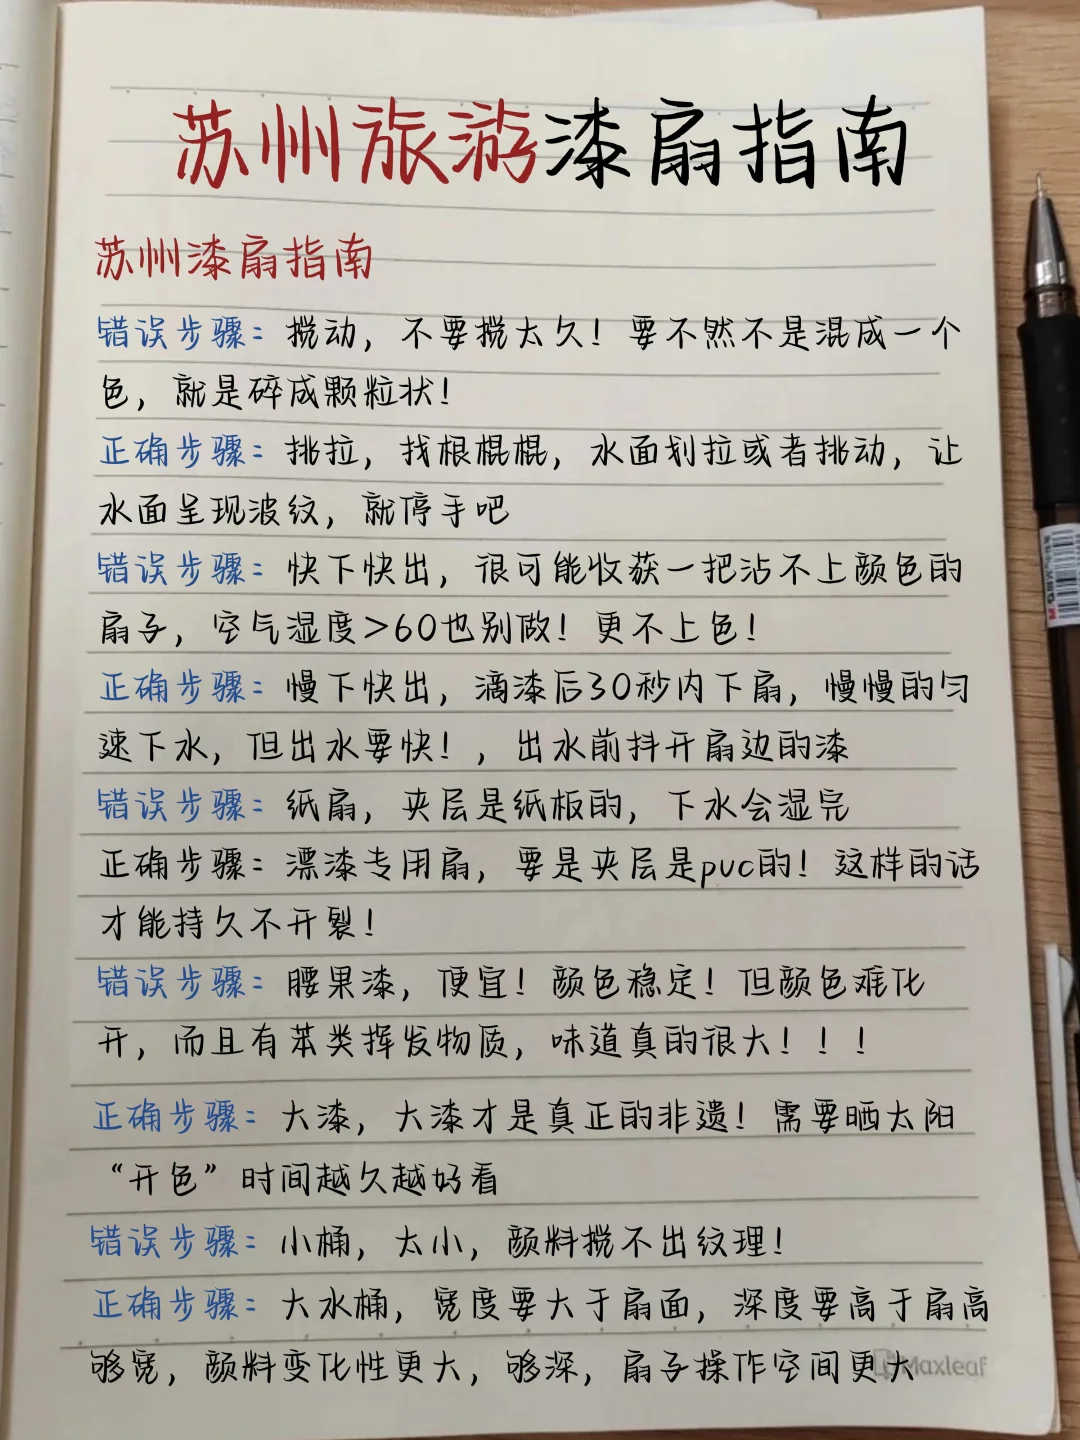 苏州旅游漆扇指南
苏州漆扇指南
错误步骤：搅动，不要搅太久！要不然不是混成一个
色，就是碎成颗粒状！
正确步骤：挑拉，找根棍棍，水面划拉或者挑动，让
水面呈现波纹，就停手吧
错误步骤：快下快出，很可能收获一把沾不上颜色的
扇子，空气湿度>60也别做！更不上色！
正确步骤：慢下快出，滴漆后30秒内下扇，慢慢的匀
速下水，但出水要快！，出水前抖开扇边的漆
错误步骤：纸扇，夹层是纸板的，下水会湿完
正确步骤：漂漆专用扇，要是夹层是pvc的！这样的话
才能持久不开裂！
错误步骤：腰果漆，便宜！颜色稳定！但颜色难化
开，而且有苯类挥发物质，味道真的很大！！！
正确步骤：大漆，大漆才是真正的非遗！需要晒太阳
“开色”时间越久越好看
错误步骤：小桶，太小，颜料搅不出纹理！
正确步骤：大水桶，宽度要大于扇面，深度要高于扇高
够宽，颜料变化性更大，够深，扇子操作空间更大
Maxleaf